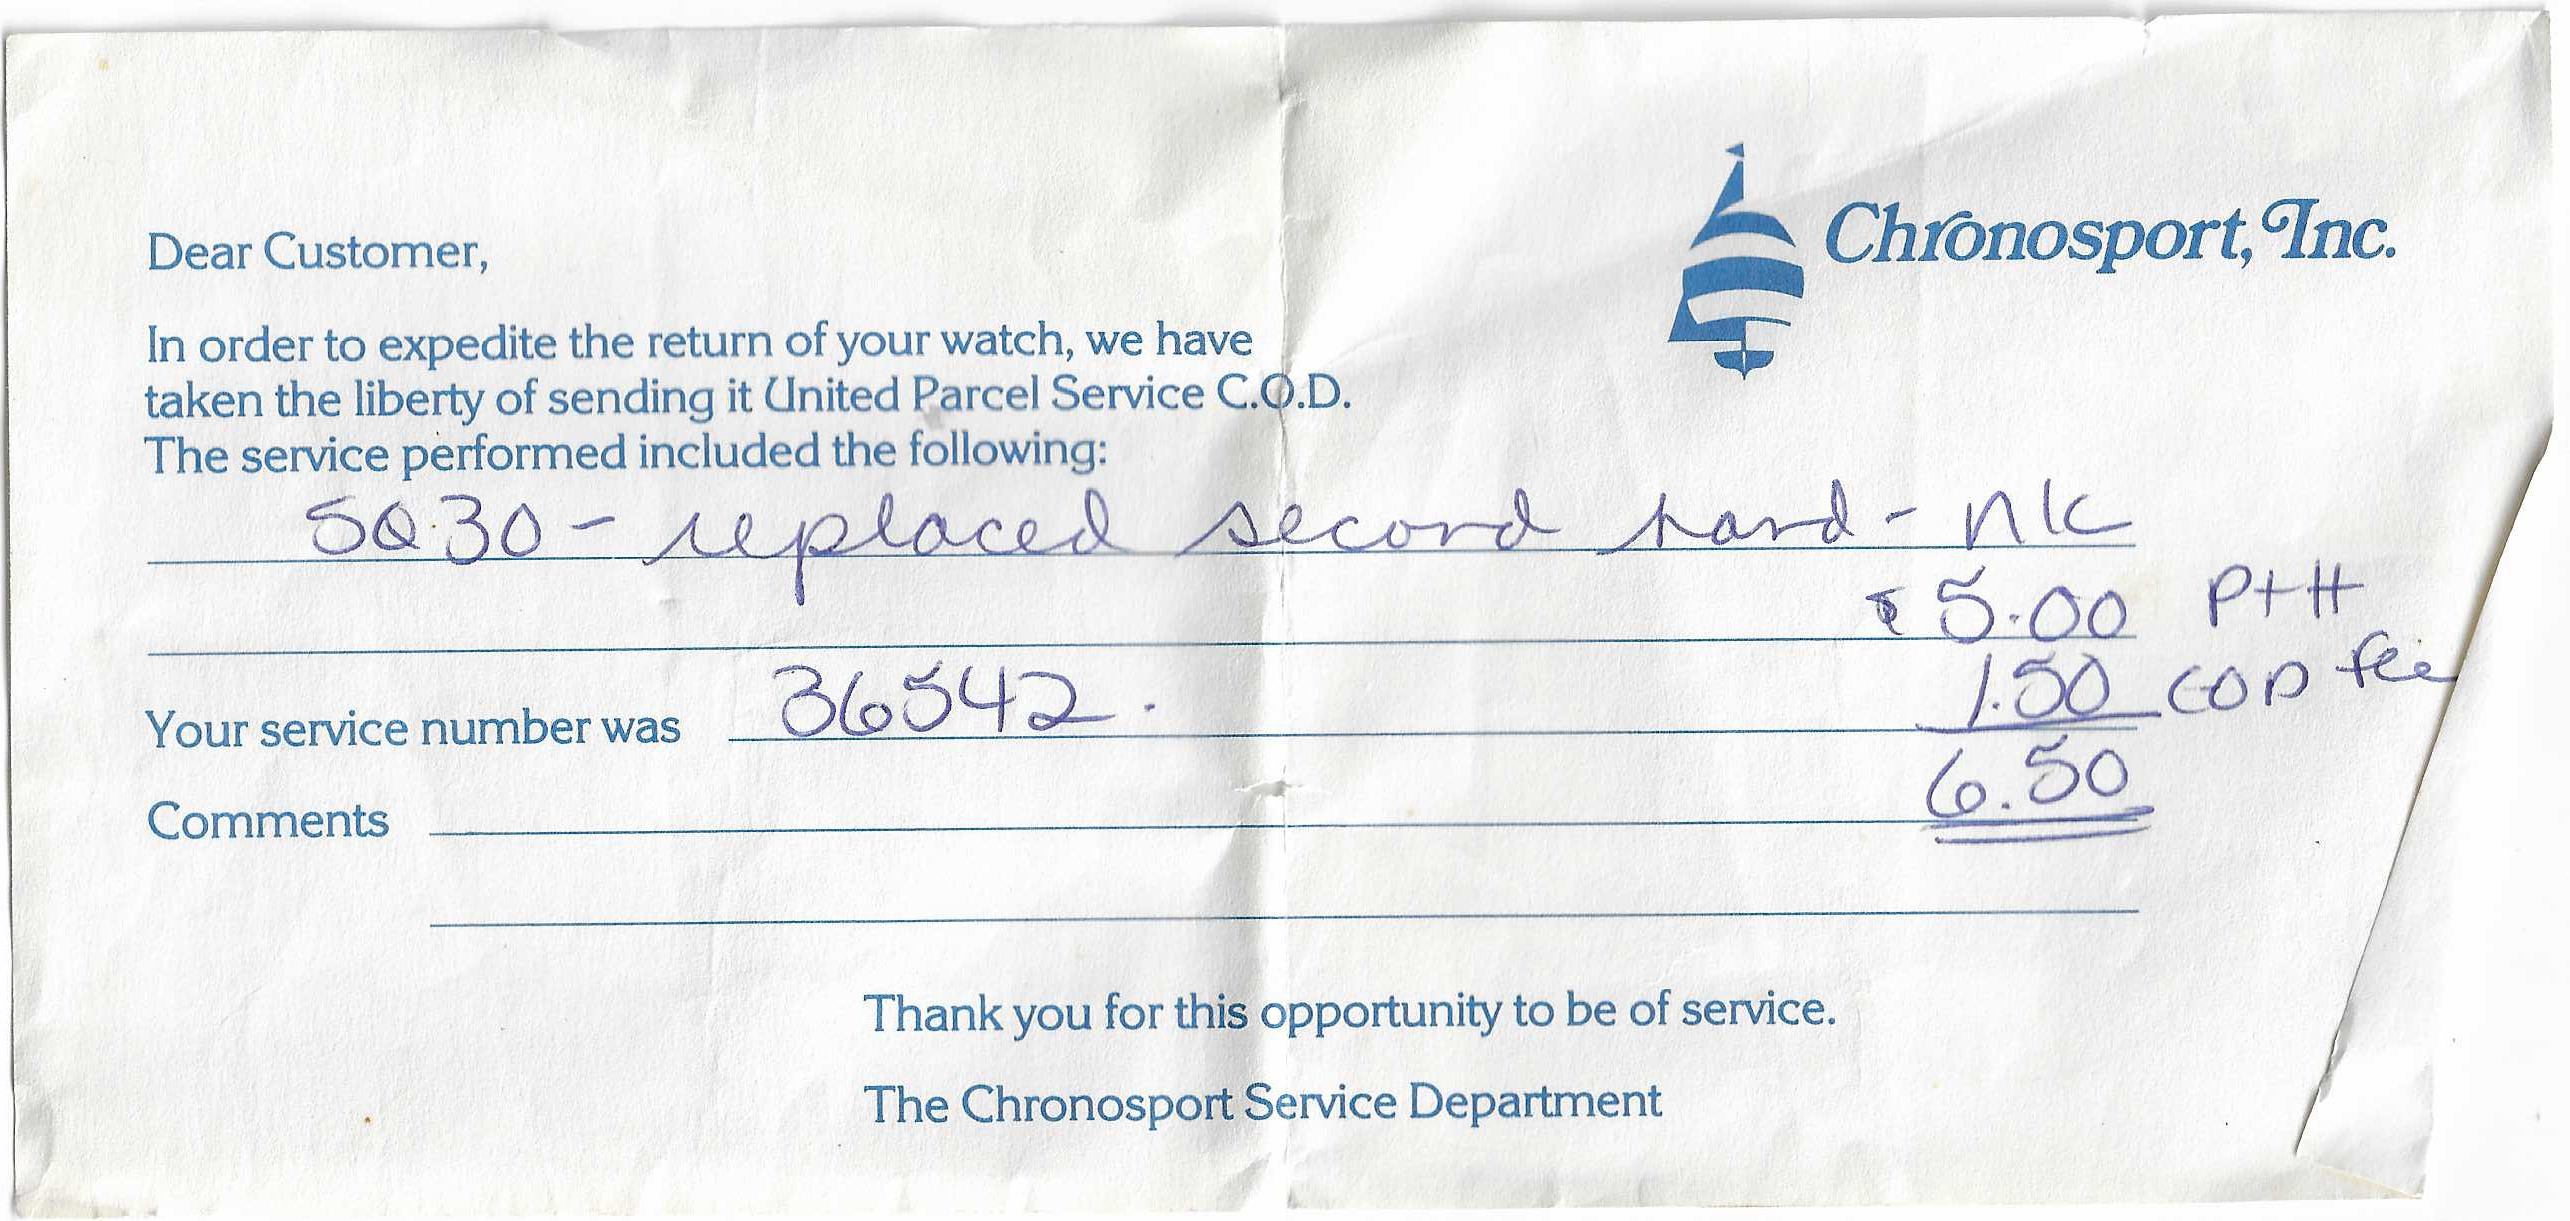 Chronosport, Inc.
Dear Customer,
In order to expedite the return of your watch, we have
taken the liberty of sending it United Parcel Service C.O.D.
The service performed included the following:
SQ30 - replaced second hand - nk
$5.00 P+H
1.50 COD fee
Your service number was 36542.
6.50
Comments
Thank you for this opportunity to be of service.
The Chronosport Service Department